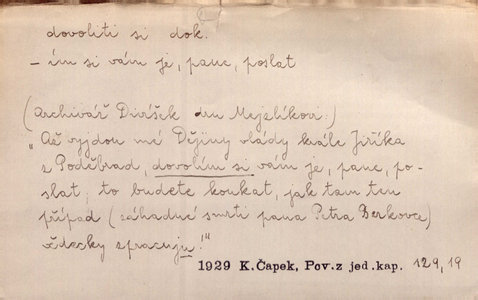 dovoliti si dok.
- ím si vám je, pane, poslat
(Archivář Divíšek dru Mejzlíkovi:)
"Až vyjdou mé Dějiny vlády krále Jiříka
z Poděbrad, dovolím si vám je, pane, po-
slat; to budete koukat, jak tam ten
případ (záhadné smrti pana Petra Berkovce)
vědecky zpracuju!"
1929 K.Čapek, Pov.z jed.kap. 129,19